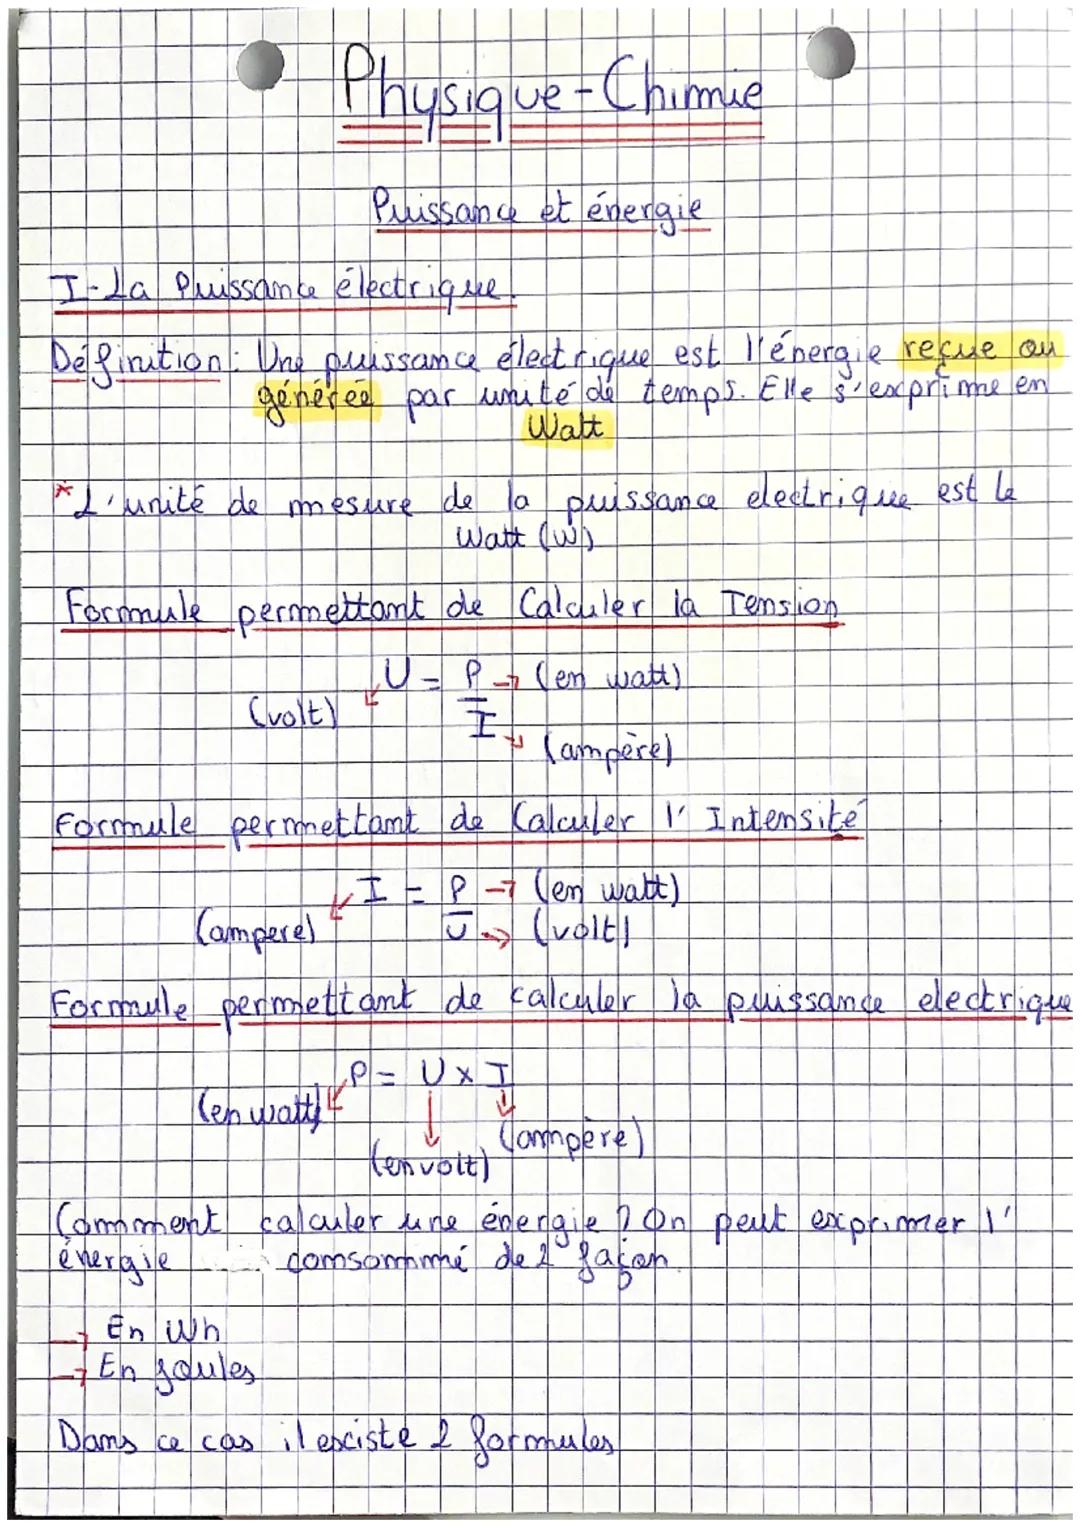 Physique-Chimie
Puissance et énergie
I-La Puissance électrique.
Définition: Une puissance électrique est l'énergie reçue ou
générée par unité de temps. Elle s'exprime en
Watt
*L'unité de mesure de la puissance electrique est le
Watt (W)
Formule permettant de Calculer la Tension
U = P → (en watt)
(volt)
I
(ampère)
Formule permettant de Calculer l'Intensité
I = P → (en watt)
(ampere) U → (volt)
Formule permettant de calculer la puissance electrique
P = U x I
(en watt)
(ampère)
(en volt)
Comment calculer une énergie ? On peut exprimer l'
énergie comsommé de 2 façon
→ En Wh
→ En joules
Dans ce cas il esciste 2 formules